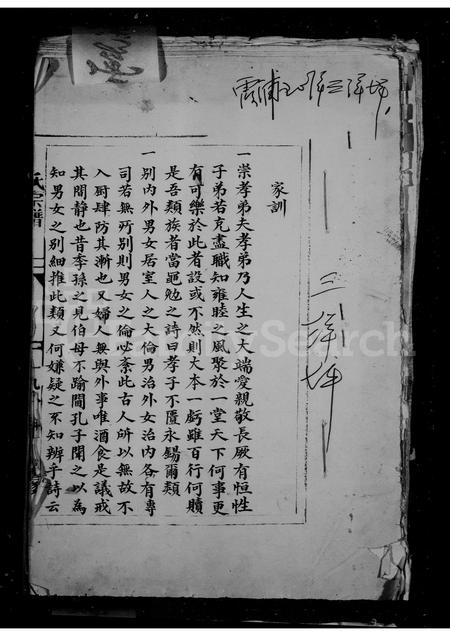 霞浦
三洋坪
家訓
一崇孝弟夫孝弟乃人生之大端愛親敬長厥有恒性
子弟若克盡職知雍睦之風聚於一堂天下何事更
有可樂於此者設或不然則大本一虧雖百行何贖
是吾類族者當黽勉之詩曰孝子不匱永錫爾類
一別內外男女居室人之大倫男治外女治內各有專
司若無所別則男女之倫必紊此古人所以無故不
入厨肆防其漸也又婦人無與外事唯酒食是議戒
其間靜也昔季孫之見伯母不踰閫孔子聞之以為
知男女之別細推此類又何嫌疑之不知辨乎詩云
氏宗譜
FamilySearch